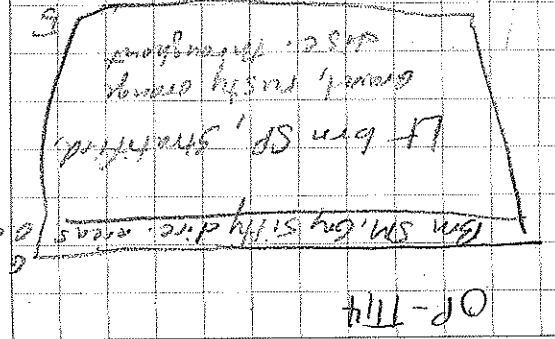 OP-TT14
0
Brn SM, Gry silty disc. areas
Lt brn SP, stratified
Gravel, rusty orange
disc. throughout